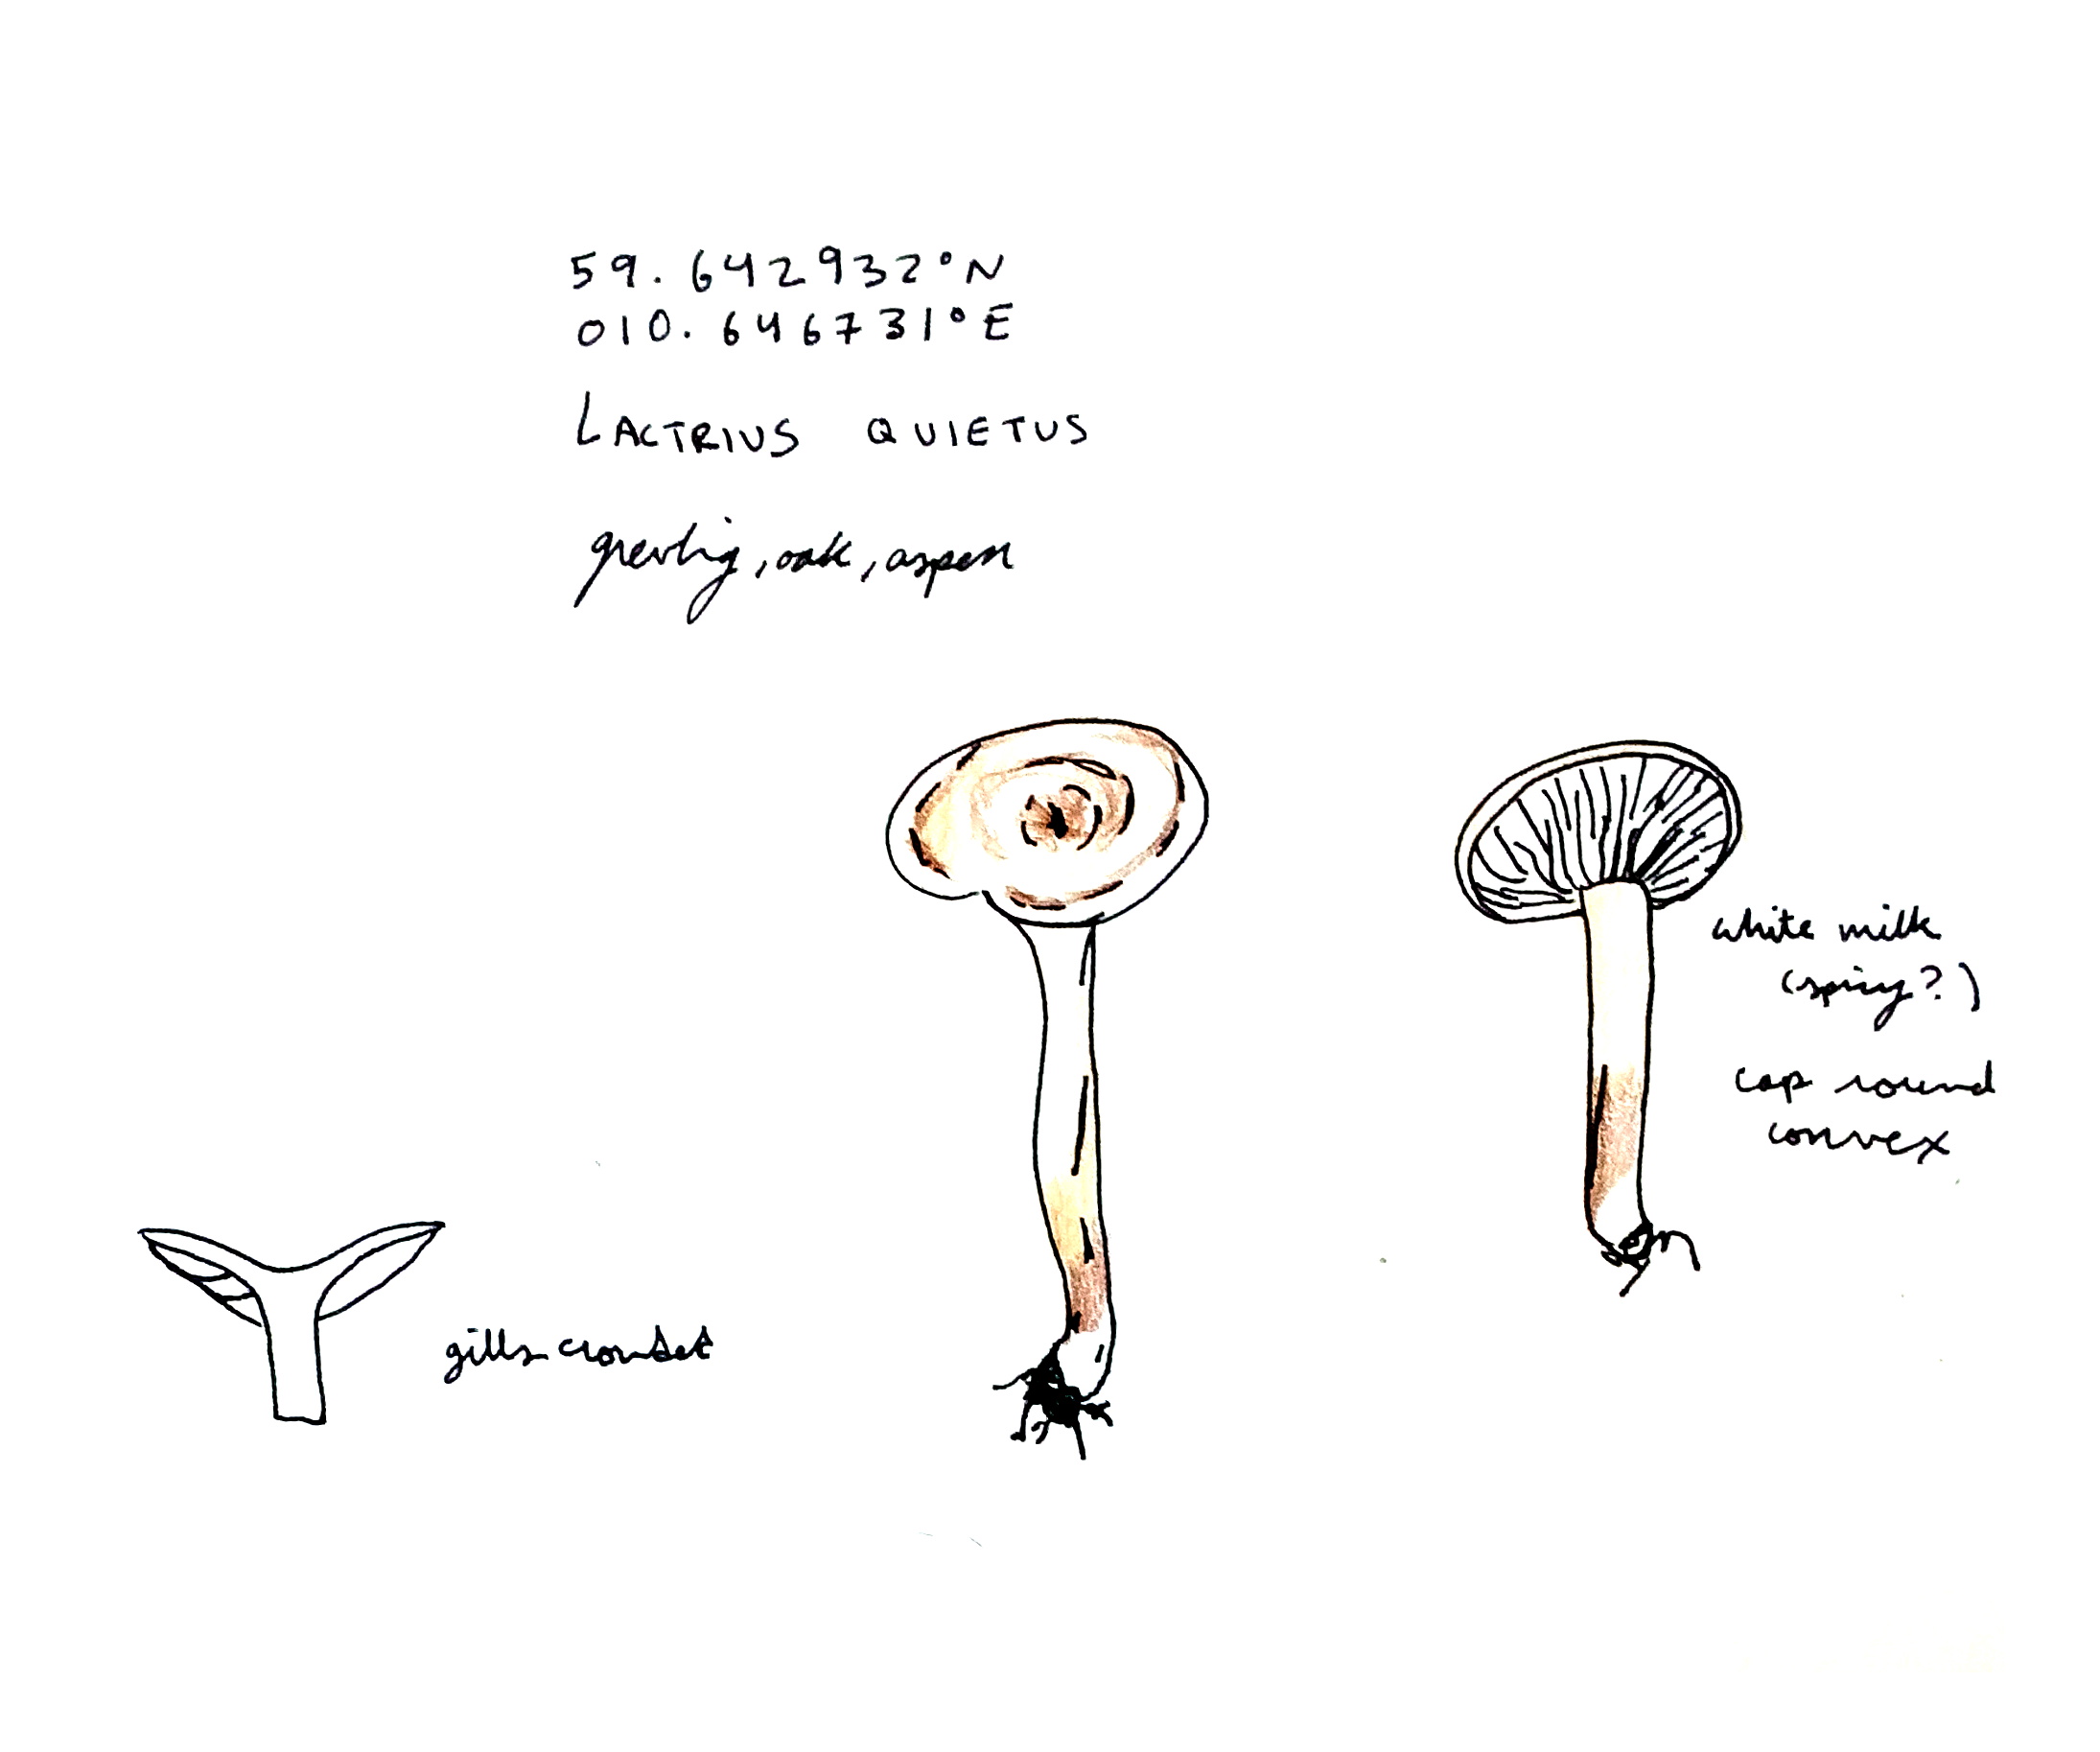 59.642932°N
010.646731°E
LACTRIUS QUIETUS
, oak, aspen
white milk
(spicy?)
cap round
convex
gills